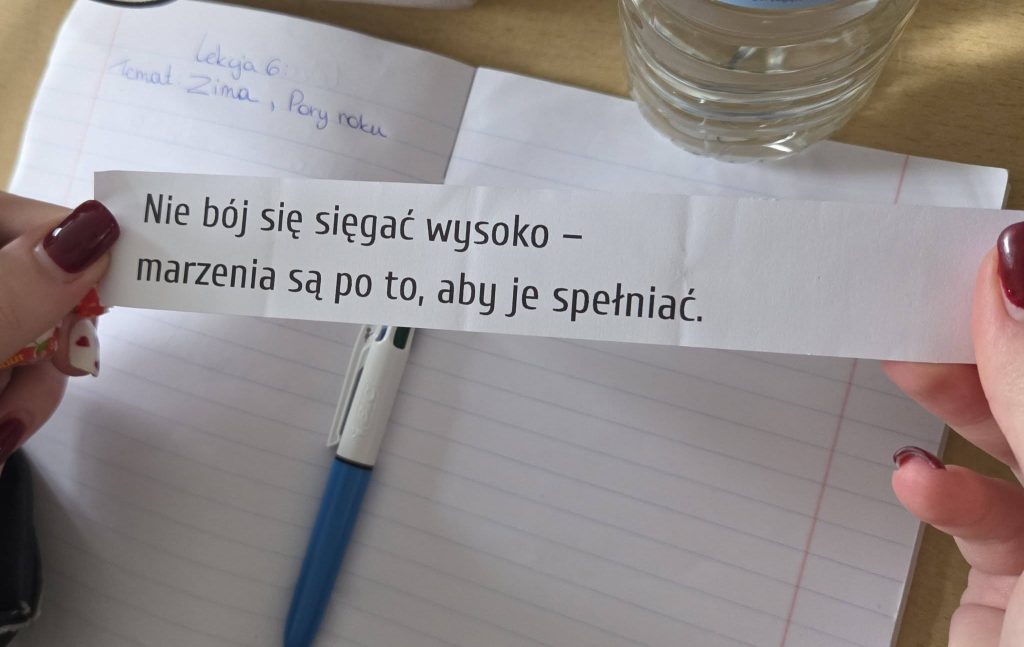 Lekcja 6:
Temat: Zima, Pory roku
Nie bój się sięgać wysoko –
marzenia są po to, aby je spełniać.